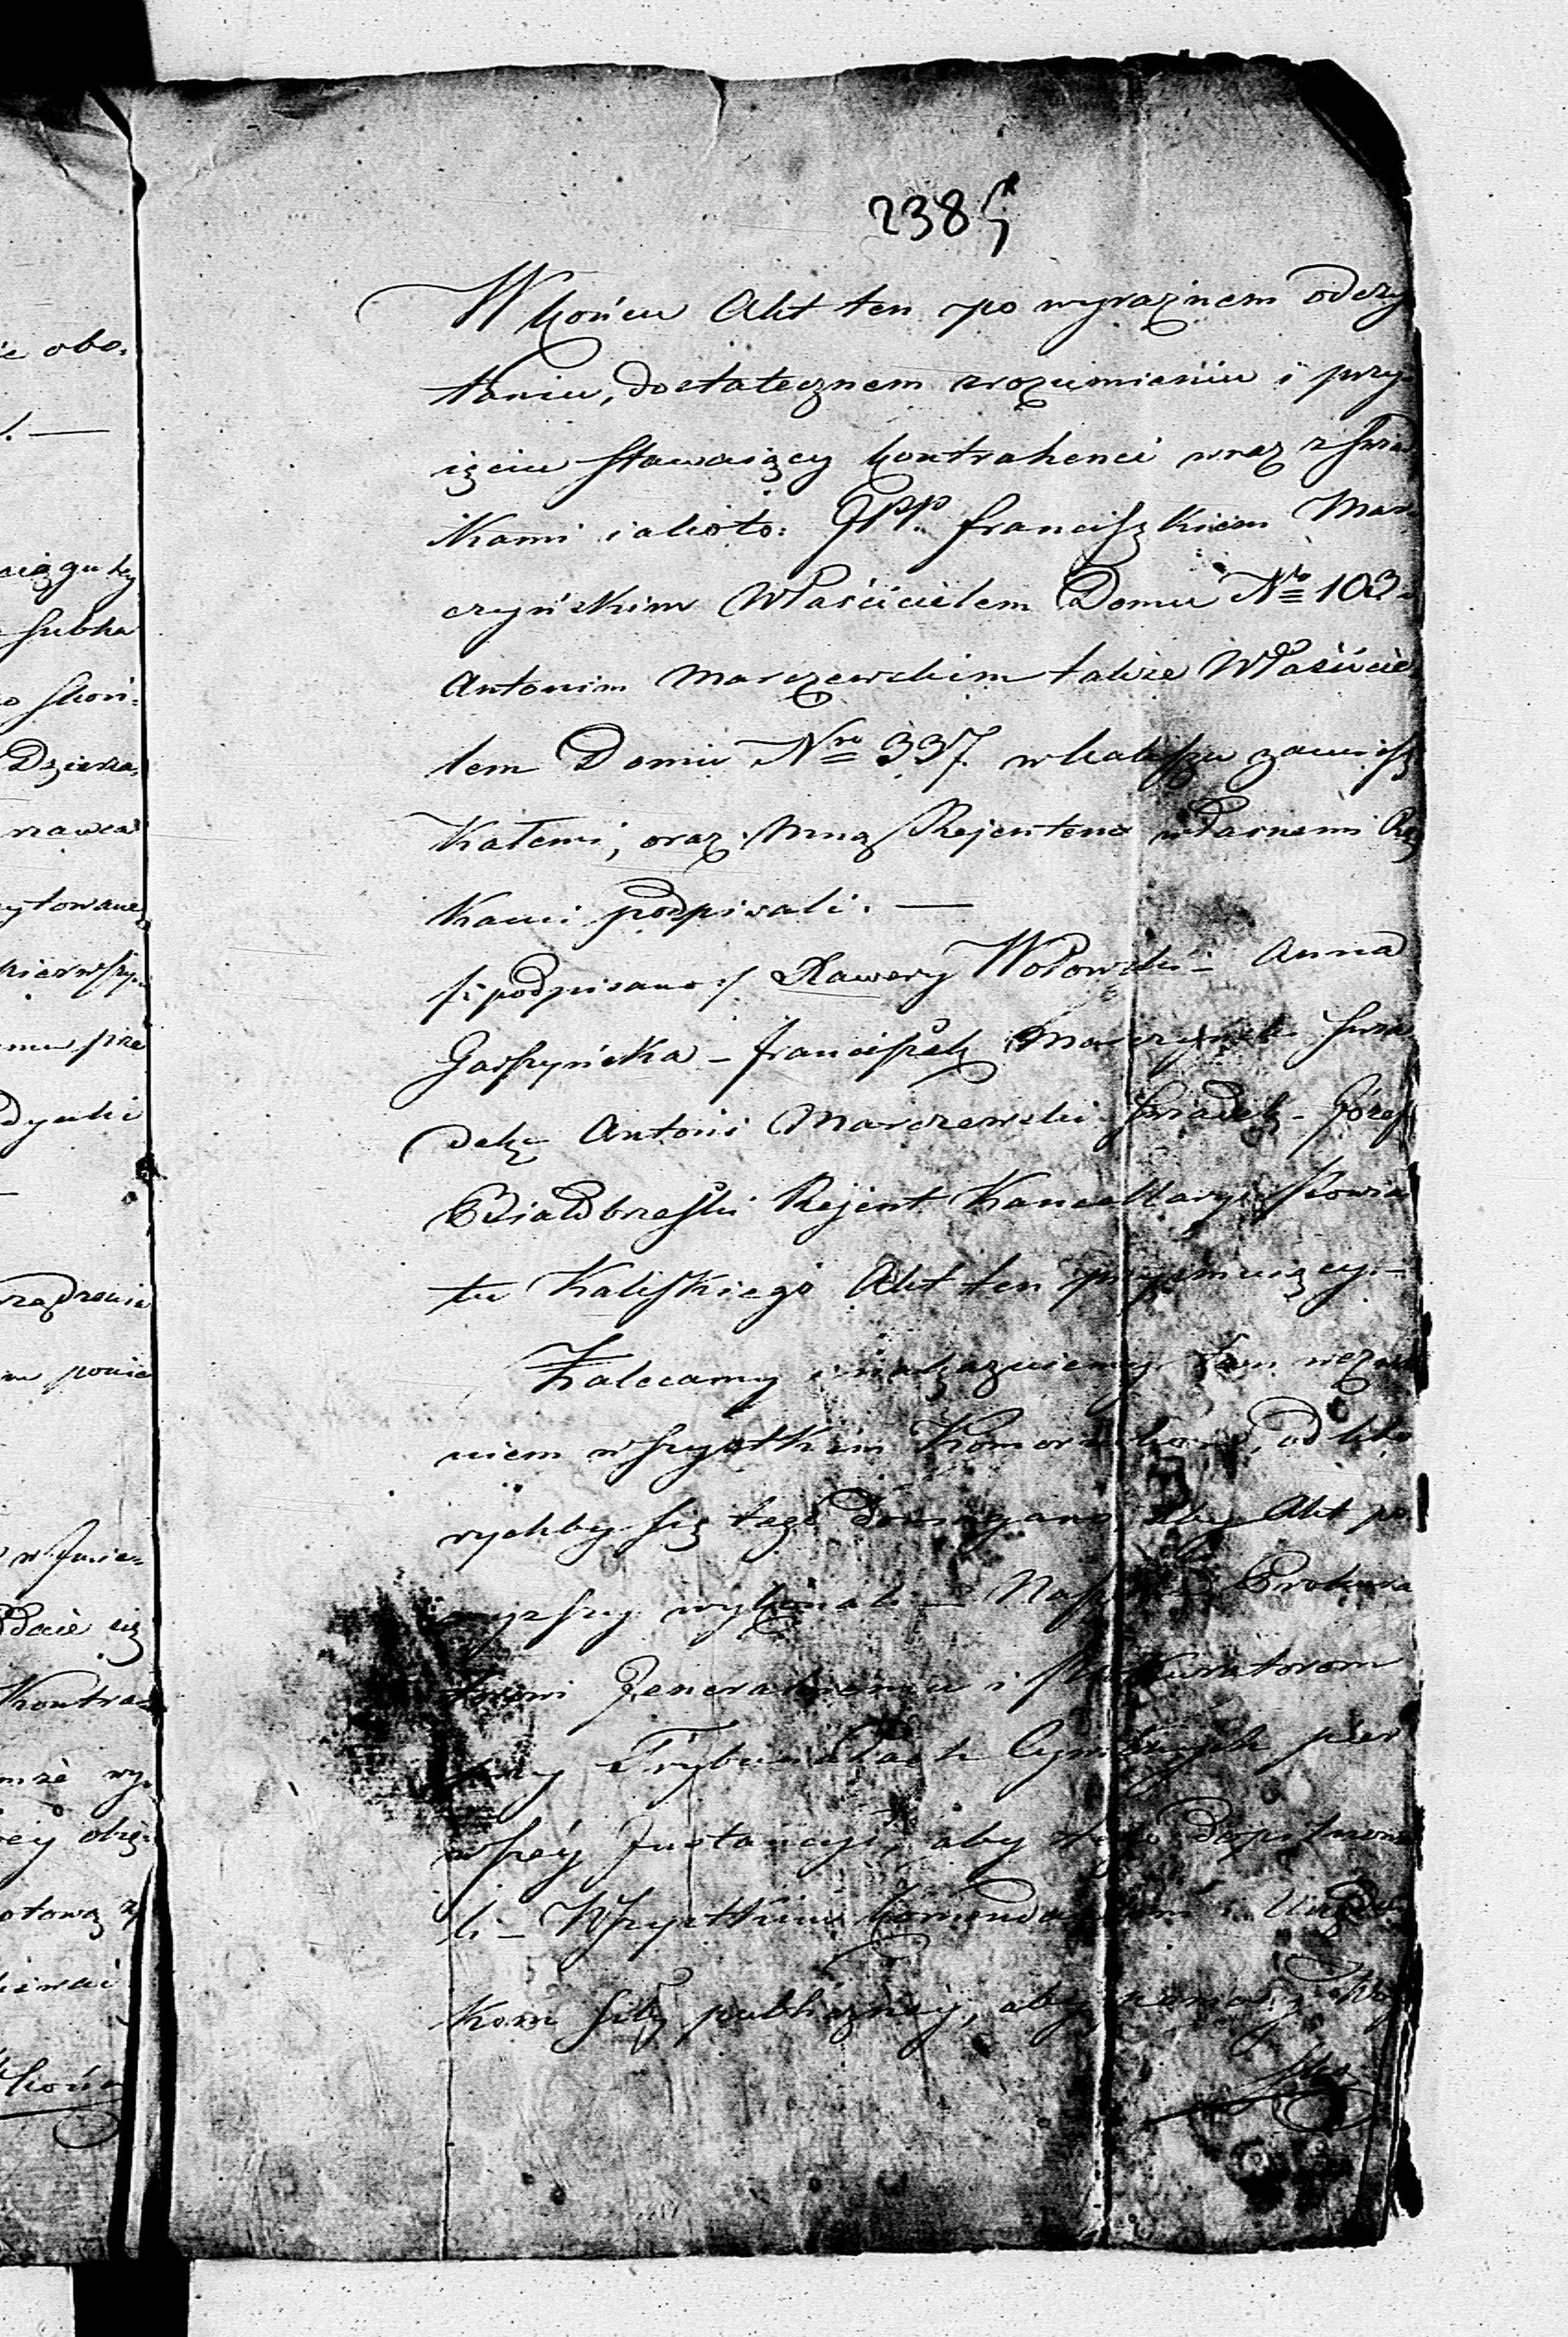 2385
W końcu Akt ten po wyraźnem odczy
taniu, dostatecznem zrozumieniu i przy
ięciu stawaiący kontrahenci wraz z świad
kami iakoto: JPP. Franciszkiem Mar
czyńskim Właścicielem Domu Nro 103
Antonim Marczewskim także Właścicie
lem Domu Nro 337 w Kaliszu zamiesz
kałemi, oraz mną Rejentem własnemi Rę
kami podpisali. —
/:podpisano:/ Xawery Wołowski – Anna
Garszyńska – Franciszek Marczyński Świa
dek Antoni Marczewski Świadek – Józef
Białobrzeski Rejent Kancellaryi Powia
tu Kaliskiego Akt ten przyimuiący. –
Zalecamy i nakazuiemy tem wezwa
niem wszystkim Komornikom, od któ
rychby się tego domagano, aby Akt po
wyższy wykonali – Naszemu Prokura
torowi Jeneralnemu i Prokuratorom
przy Trybunałach Cywilnych pier
wszéy Instancyi, aby tego dopilnowa
li – Wszystkim komendantom i Urzędni
kom siły publiczney, aby pomocy